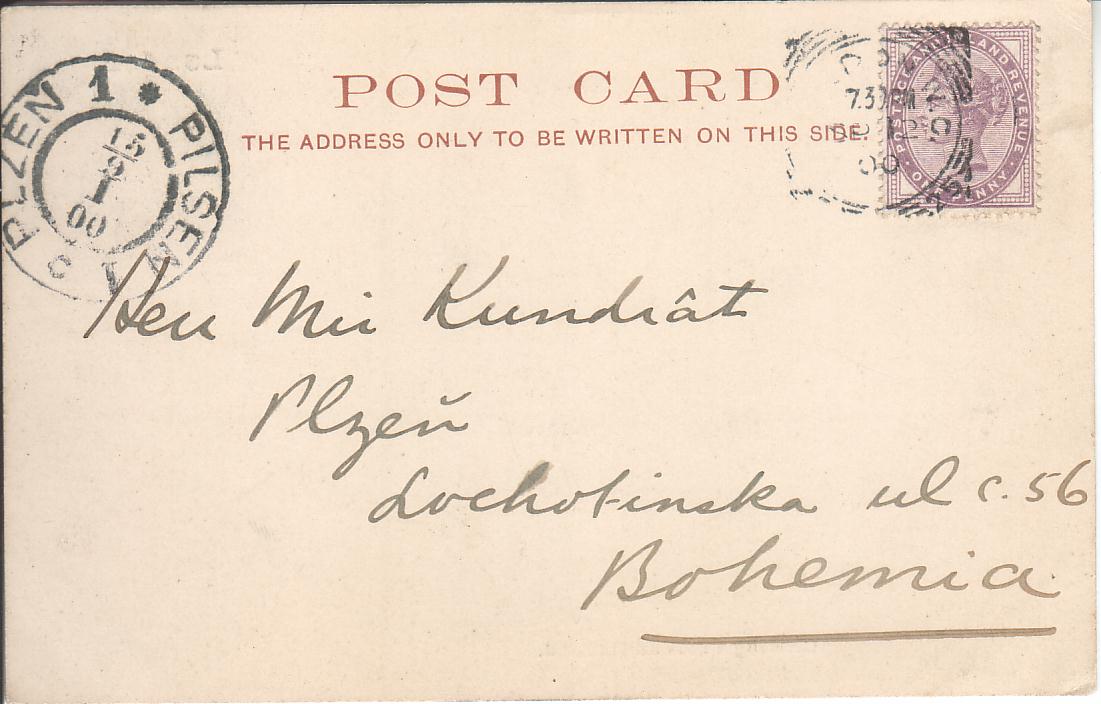 POST CARD
THE ADDRESS ONLY TO BE WRITTEN ON THIS SIDE.
PLZEN 1 * PILSEN 1
15
9
00
7.30 PM
SP 12
00
POSTAGE AND INLAND REVENUE
ONE PENNY
Herr Mir Kundrât
Plzeň
Lochotinska ul c. 56
Bohemia